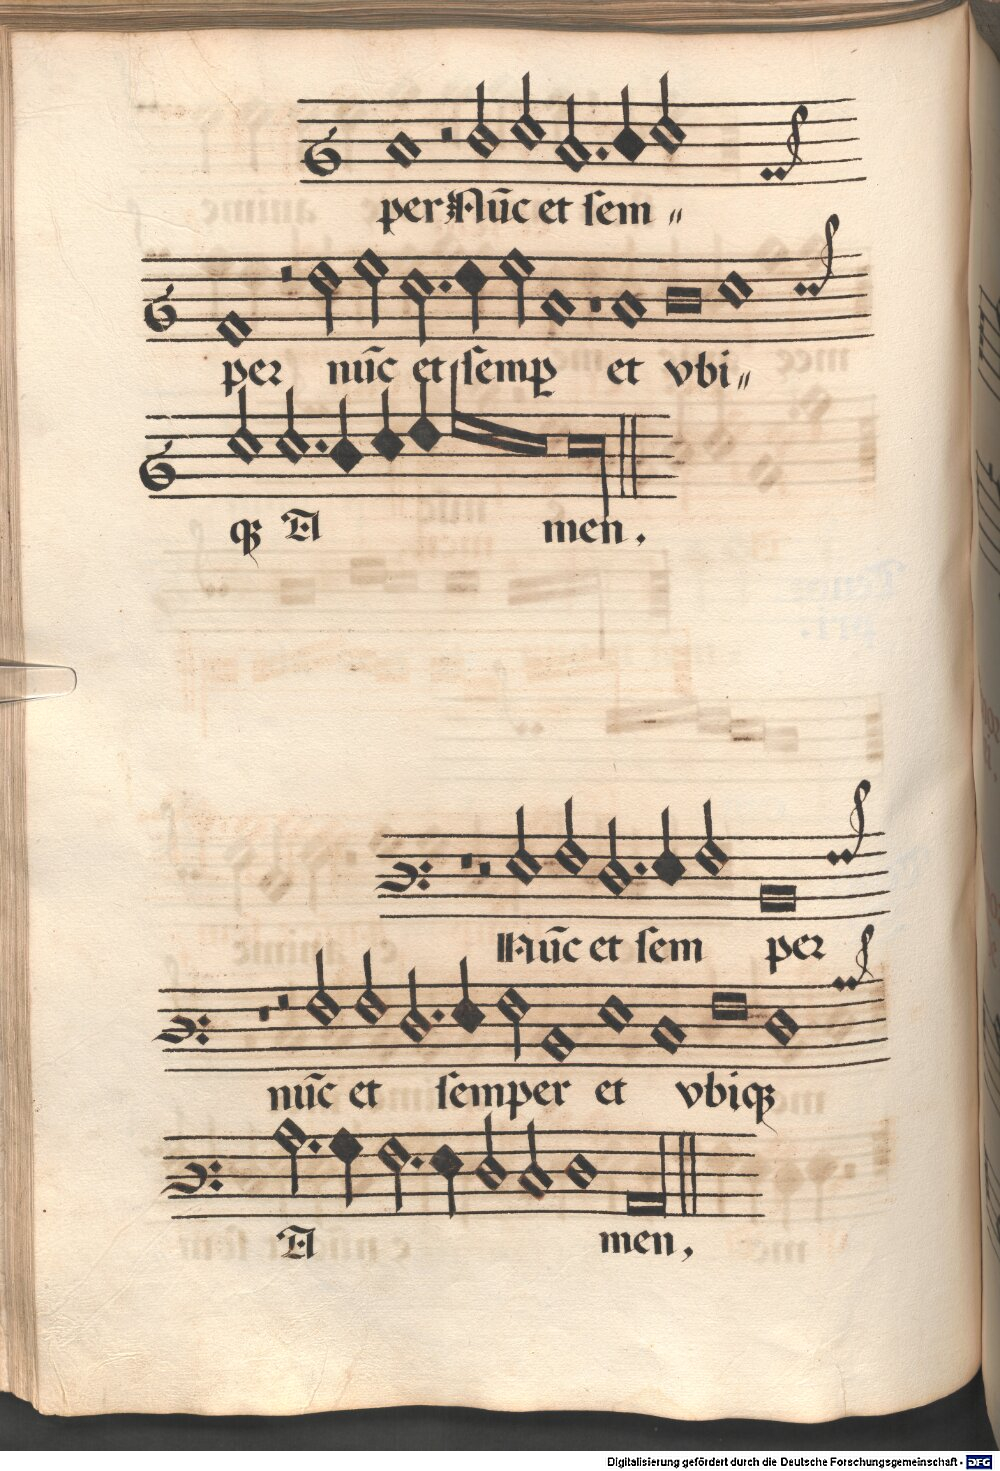 per Nūc et sem〃
per nūc et semꝑ et vbi〃
qꝫ A men.
Nūc et sem per
nūc et semper et vbiqꝫ
A men,
Digitalisierung gefördert durch die Deutsche Forschungsgemeinschaft - DFG